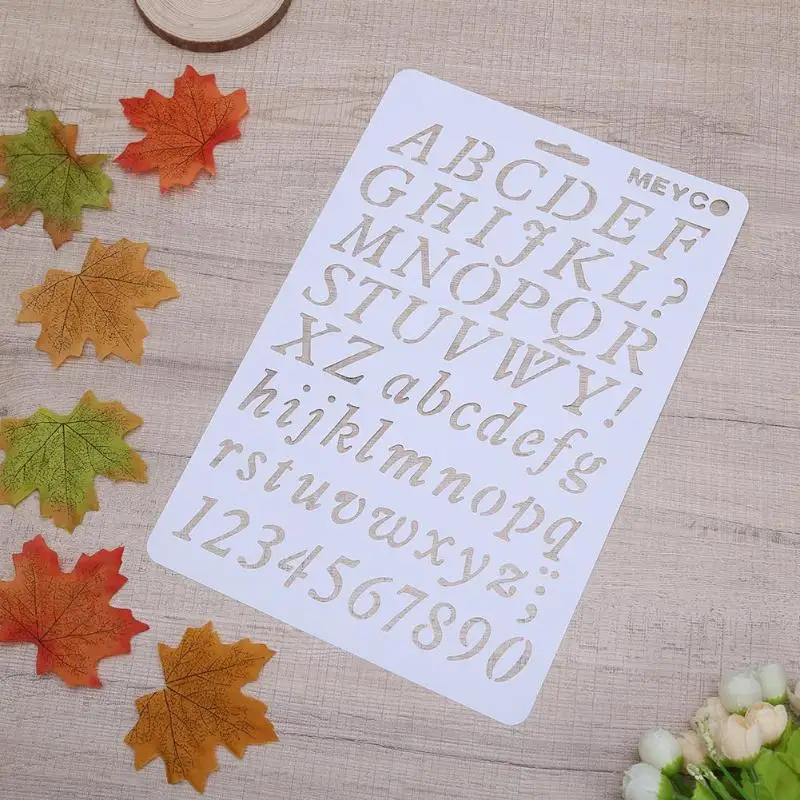 MEYCO
ABCDEF
GHIJKL?
MNOPQR
STUVWY!
XZ abcdefg
hijklmnopq
rstuvwxyz;:
1234567890